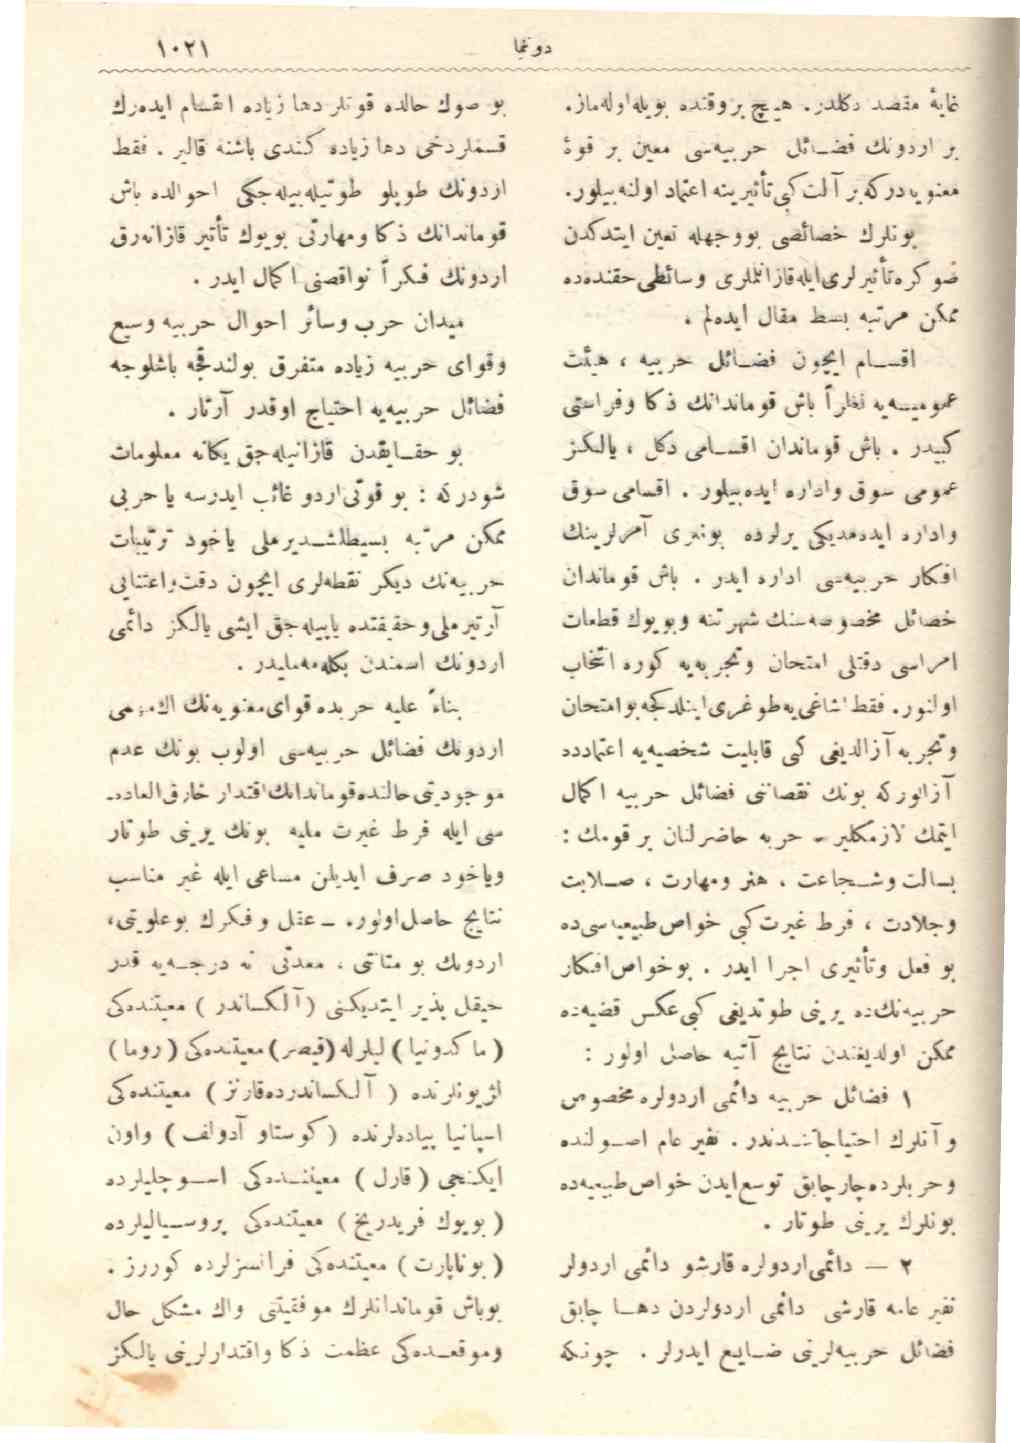 دوننما
١٠٢١
غايهٔ مقصد دكلدر. هيچ بر وقتده بويله اوله‌ماز.
بر اردونك فضائل حربيه‌سى معين بر قوهٔ
معنويه‌در كه بر آلت كبى تأثيرينه اعتماد اولنه‌بيلور.
بونلرك خصائصى بووجهله تعين ايتدكدن
صوكره تأثيرلرى ايله قازانلملرى وسائطى حقنده‌ده
ممكن مرتبه بسط مقال ايده‌لم .
اقسام ايچون فضائل حربيه ، هيئت
عموميه‌يه نظراً باش قوماندانك ذكا وفراستى
كبيدر . باش قوماندان اقسامى دكل ، يالكز
عمومى سوق واداره ايده‌بيلور . اقسامى سوق
واداره ايده‌مديكى يرلرده بونلرى آمرلرينك
افكار حربيه‌سى اداره ايدر . باش قوماندان
خصائل مخصوصه‌سنك شهرتنه وبويوك قطعات
امراسى دقتلى امتحان وتجربه‌يه كوره انتخاب
اولنور. فقط اشاغى‌يه طوغرى اينلدكجه بو امتحان
وتجربه آزالديغى كبى قابليت شخصيه‌يه اعتمادده
آزالور كه بونك نقصاننى فضائل حربيه اكمال
ايتمك لازمكلير ـ حربه حاضرلنان بر قومك :
بسالت وشجاعت ، هنر ومهارت ، صلابت
وجلادت ، فرط غيرت كبى خواص طبيعيه‌سى ده
بو فعل وتأثيرى اجرا ايدر . بو خواص افكار
حربيه‌نك‌ده يرينى طوتديغى كبى عكس قضيه‌ده
ممكن اولديغندن نتايج آتيه حاصل اولور :
١ فضائل حربيه دائمى اردولره مخصوص
و آنلرك احتياجاتندندر . نفير عام اصولنده
وحربلرده چارچابق توسع ايدن خواص طبيعيه‌ده
بونلرك يرينى طوتار .
٢ — دائمى اردولره قارشو دائمى اردولر
نفير عامه قارشى دائمى اردولردن دها چابق
فضائل حربيه‌لرينى ضايع ايدرلر . چونكه
بو صوك حالده قوتلر دها زياده انقسام ايده‌رك
قسملردخى دها زياده كندى باشنه قالير . فقط
اردونك طوپلو طوتيله‌بيله‌جكى احوالده باش
قوماندانك ذكا ومهارتى بويوك تأثير قازانه‌رق
اردونك فكراً نواقصنى اكمال ايدر .
ميدان حرب وسائر احوال حربيه وسيع
وقواى حربيه زياده متفرق بولندقجه باشلوجه
فضائل حربيه‌يه احتياج اوقدر آرتار .
بو حقايقدن قازانيله‌جق يكانه معلومات
شودر كه : بو قوتى اردو غائب ايدرسه يا حربى
ممكن مرتبه بسيطلشديرملى ياخود ترتيبات
حربيه‌نك ديكر نقطه‌لرى ايچون دقت واعتنايى
آرتيرملى وحقيقتده ياپيله‌جق ايشى يالكز دائمى
اردونك اسمندن بكله‌مه‌مليدر .
بناءً عليه حربده قواى معنويه‌نك اك مهمى
اردونك فضائل حربيه‌سى اولوب بونك عدم
موجوديتى حالنده قوماندانك اقتدار خارق‌العاده‌ـ
سى ايله فرط غيرت مليه بونك يرينى طوتار
وياخود صرف ايديلن مساعى ايله غير مناسب
نتايج حاصل اولور. ـ عقل و فكرك بو علويتى،
اردونك بو متانتى ، معدنى نه درجه‌يه قدر
صيقل پذير ايتديكنى (آلكساندر) معيتنده‌كى
(ماكدونيا) ليلرله (قيصر) معيتنده‌كى (روما)
لژيونلرنده (آلكساندرده‌قارنز) معيتنده‌كى
اسپانيا پياده‌لرنده (كوستاو آدولف) واون
ايكنجى (قارل) معيتنده‌كى اسوچليلرده
(بويوك فريدريخ) معيتنده‌كى پروسياليلرده
(بوناپارت) معيتنده‌كى فرانسزلرده كوررز .
بوباش قوماندانلرك موفقيتنى واك مشكل حال
وموقعده‌كى عظمت ذكا واقتدارلرينى يالكز